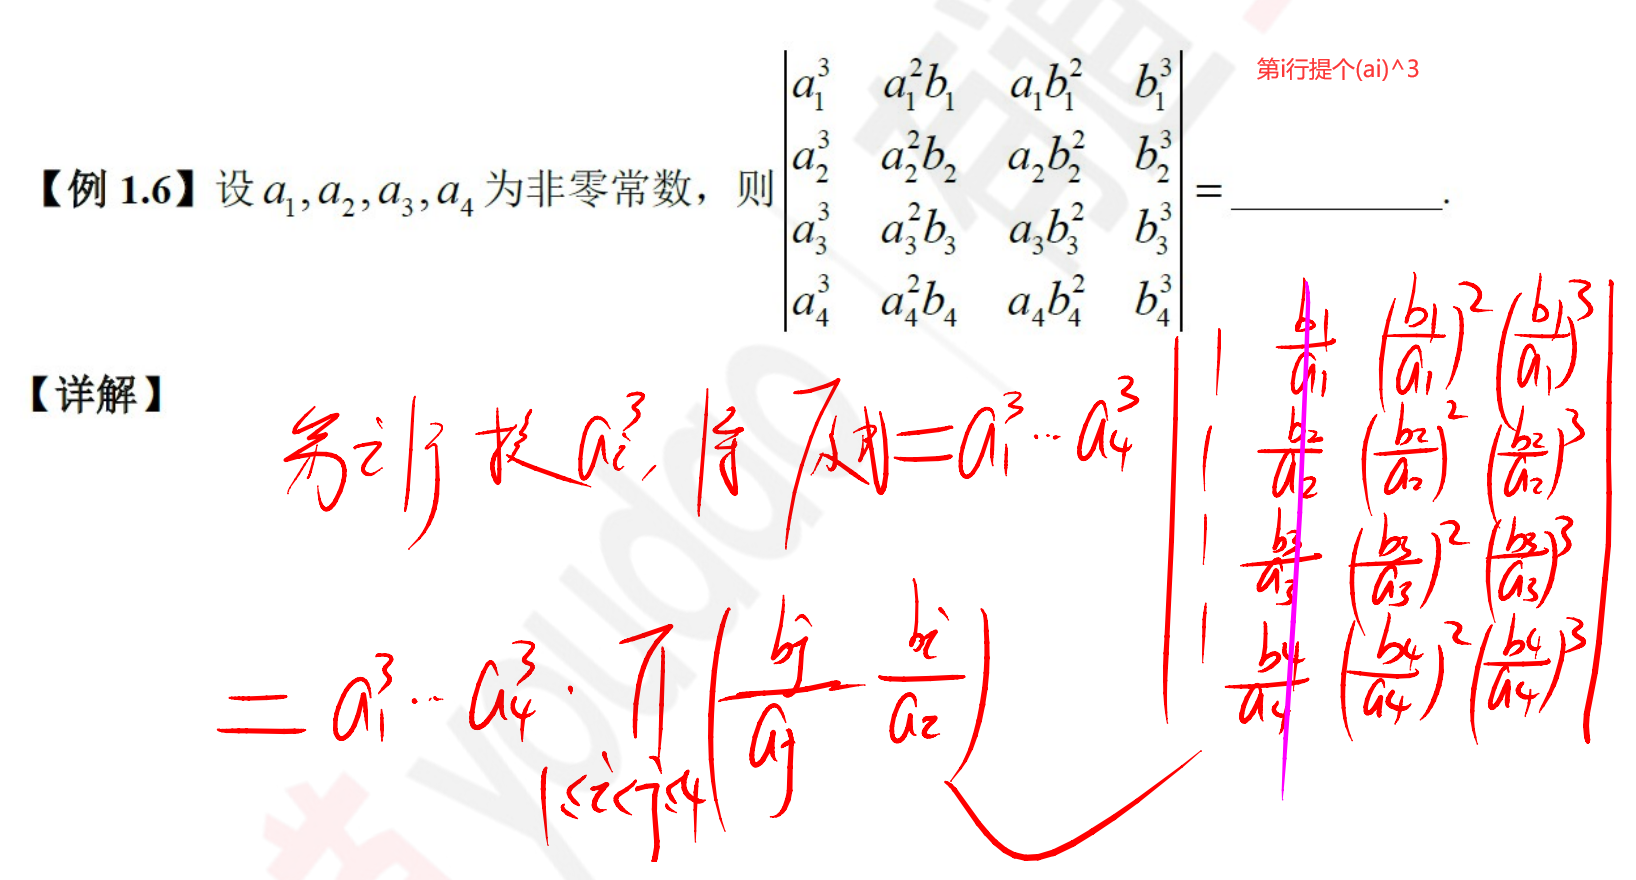 第i行提个(ai)^3
【例 1.6】设 a₁,a₂,a₃,a₄ 为非零常数，则
| a₁³ a₁²b₁ a₁b₁² b₁³ |
| a₂³ a₂²b₂ a₂b₂² b₂³ |
| a₃³ a₃²b₃ a₃b₃² b₃³ |
| a₄³ a₄²b₄ a₄b₄² b₄³ |
= ________.
【详解】
第i行提aᵢ³, 得 = a₁³…a₄³
| 1 b1/a1 (b1/a1)² (b1/a1)³ |
| 1 b2/a2 (b2/a2)² (b2/a2)³ |
| 1 b3/a3 (b3/a3)² (b3/a3)³ |
| 1 b4/a4 (b4/a4)² (b4/a4)³ |
= a₁³…a₄³ · ∏ (bj/aj - bi/ai)
1≤i<j≤4
youdao